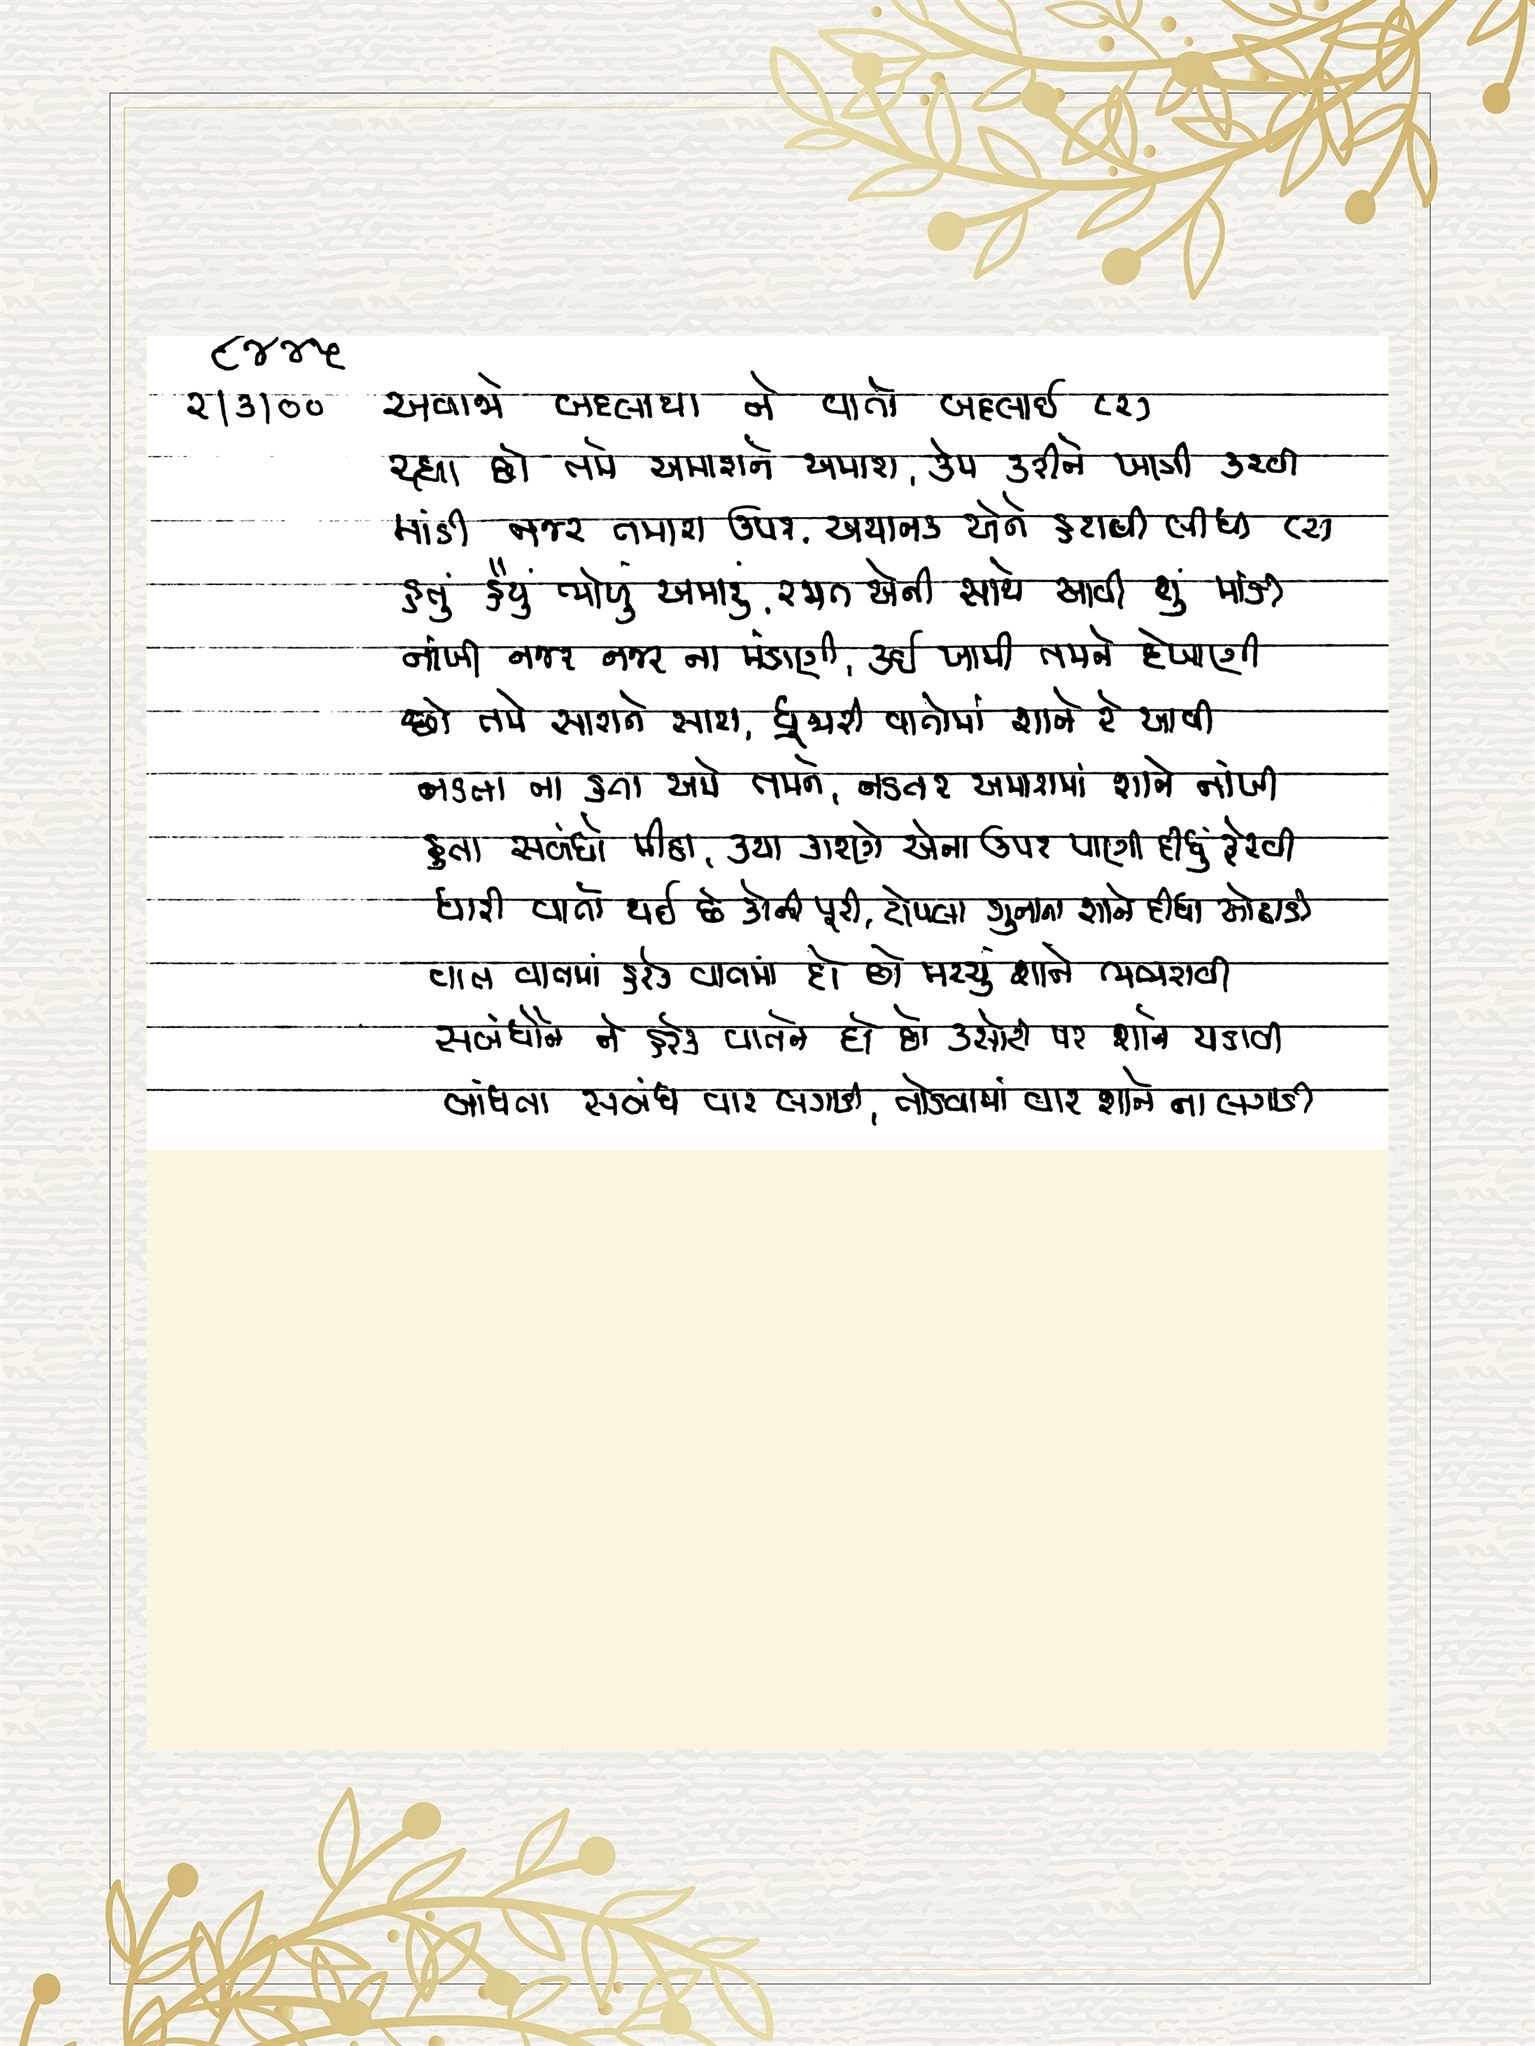 ૮૪૪૫
૨/૩/૦૦ અવાજો બદલાયા ને વાતો બદલાઈ (૨)
રહ્યા છો તમે અમારાને અમારા, કેમ કરીને ખાત્રી કરવી
માંડી નજર તમારા ઉપર, અચાનક એને હટાવી લીધી (૨)
હતું હૈયું ભોળું અમારું, રમત એની સાથે આવી શું માંડી
નાંખી નજર નજર ના મંડાણી, કઈ ખામી તમને દેખાણી
છો તમે સારાને સારા, ધૂમ્મરી વાતોમાં શાને રે આવી
નડતા ના હતા અમે તમને, નડતર અમારામાં શાને નાંખી
હતા સબંધો મીઠા, કયા કારણે એના ઉપર પાણી દીધું ફેરવી
ધારી વાતો થઈ છે કોની પૂરી, ટોપલા ગુનાના શાને દીધા ઓઢાડી
વાત વાતમાં હરેક વાતમાં દો છો મરચું શાને ભભરાવી
સબંધોને ને હરેક વાતને દો છો કસોટી પર શાને ચડાવી
બાંધતા સબંધ વાર લગાડી, તોડવામાં વાર શાને ના લગાડી